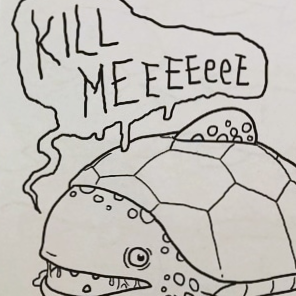 KILL
MEEEEeeE